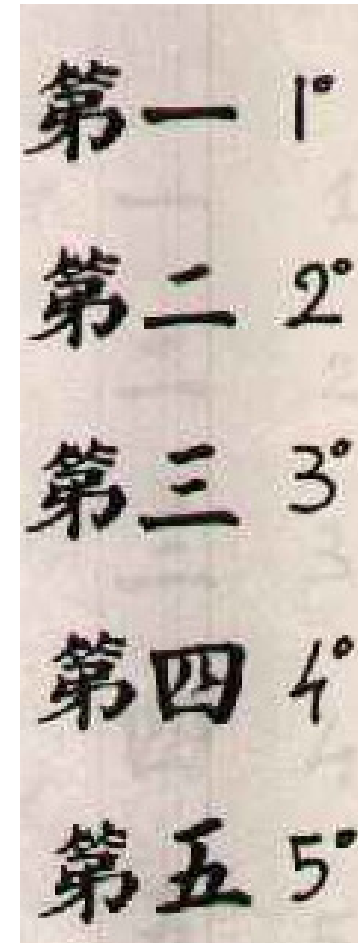 第一 1°
第二 2°
第三 3°
第四 4°
第五 5°